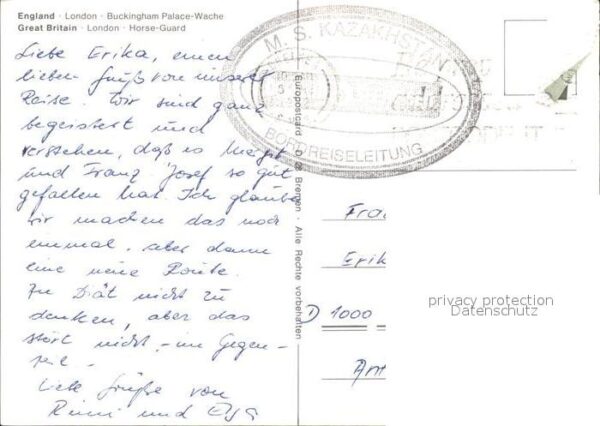 England · London · Buckingham Palace-Wache
Great Britain · London · Horse-Guard
Liebe Erika, einen
lieben Gruß von unserer
Reise. Wir sind ganz
begeistert und
verstehen, daß es Margit
und Franz Josef so gut
gefallen hat. Ich glaube
wir machen das noch
einmal, aber dann
eine neue Route.
Zu Diät nicht zu
denken, aber das
stört nicht - im Gegen-
teil -
Liebe Grüße von
und
Europostcard · D 28 Bremen · Alle Rechte vorbehalten
M. S. KAZAKHSTAN
BORDREISELEITUNG
Frau
Erik
D 1000
Am
privacy protection
Datenschutz